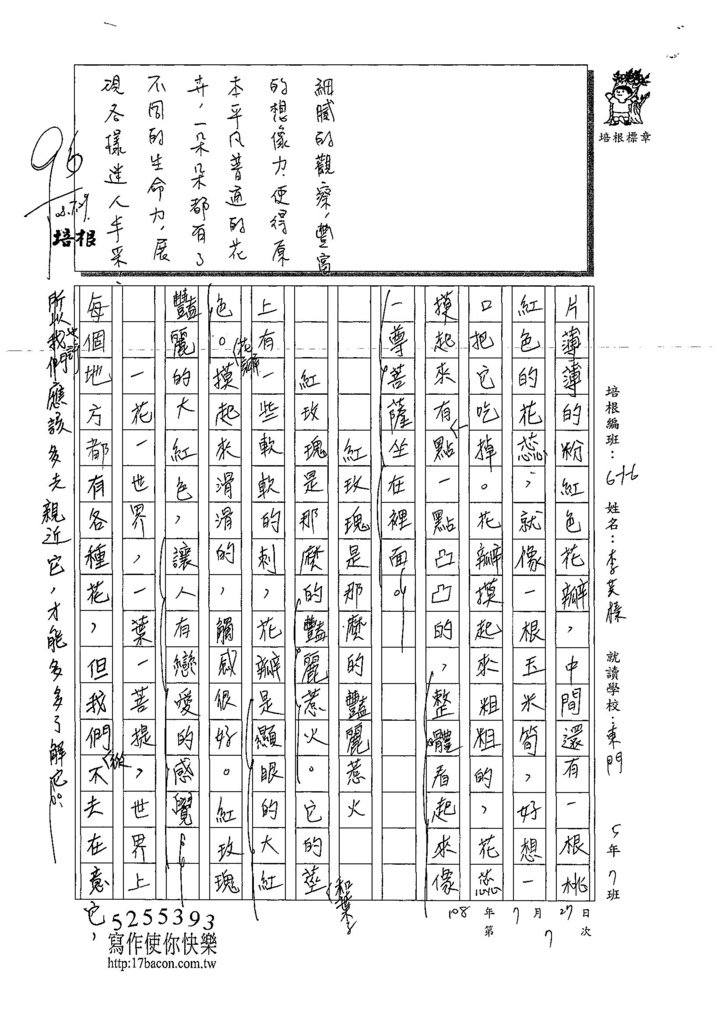 培根標章
細膩的觀察，豐富
的想像力，使得原
本平凡普通的花
卉，一朵朵都有了
不同的生命力，展
現各樣迷人丰采、
培根
培根編班：
姓名：李
就讀學校：東門
5年7班
108年7月27日
第7次
片薄薄的粉紅色花瓣，中間還有一根桃
紅色的花蕊，就像一根玉米筍，好想一
口把它吃掉。花瓣摸起來粗粗的，花蕊
摸起來有點一點凸凸的，整體看起來像
一尊菩薩坐在裡面。
紅玫瑰是那麼的豔麗惹火
紅玫瑰是那麼的豔麗惹火。它的莖
和葉子
上有一些軟軟的刺，花瓣是顯眼的大紅
色。摸起來滑滑的，觸感很好。紅玫瑰
花瓣
豔麗的大紅色，讓人有戀愛的感覺。
一花一世界，一葉一菩提，世界上
每個地方都有各種花，但我們不去在意它，
從
所以我們應該多去親近它，才能多多了解它。
5255393
寫作使你快樂
http:17bacon.com.tw